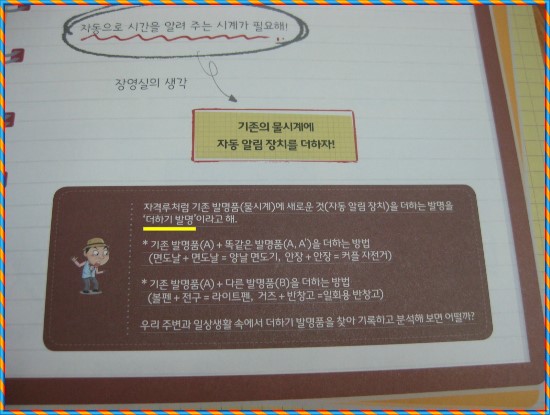 자동으로 시간을 알려 주는 시계가 필요해!
장영실의 생각
기존의 물시계에
자동 알림 장치를 더하자!
자격루처럼 기존 발명품(물시계)에 새로운 것(자동 알림 장치)을 더하는 발명을
'더하기 발명'이라고 해.
* 기존 발명품(A) + 똑같은 발명품(A, A')을 더하는 방법
(면도날 + 면도날 = 양날 면도기, 안장 + 안장 = 커플 자전거)
* 기존 발명품(A) + 다른 발명품(B)을 더하는 방법
(볼펜 + 전구 = 라이트펜, 거즈 + 반창고 =일회용 반창고)
우리 주변과 일상생활 속에서 더하기 발명품을 찾아 기록하고 분석해 보면 어떨까?